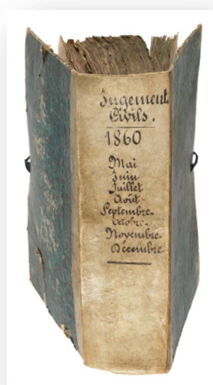 Jugement
Civils.
1860
Mai
Juin
Juillet
Août
Septembre
Octobre
Novembre
Décembre